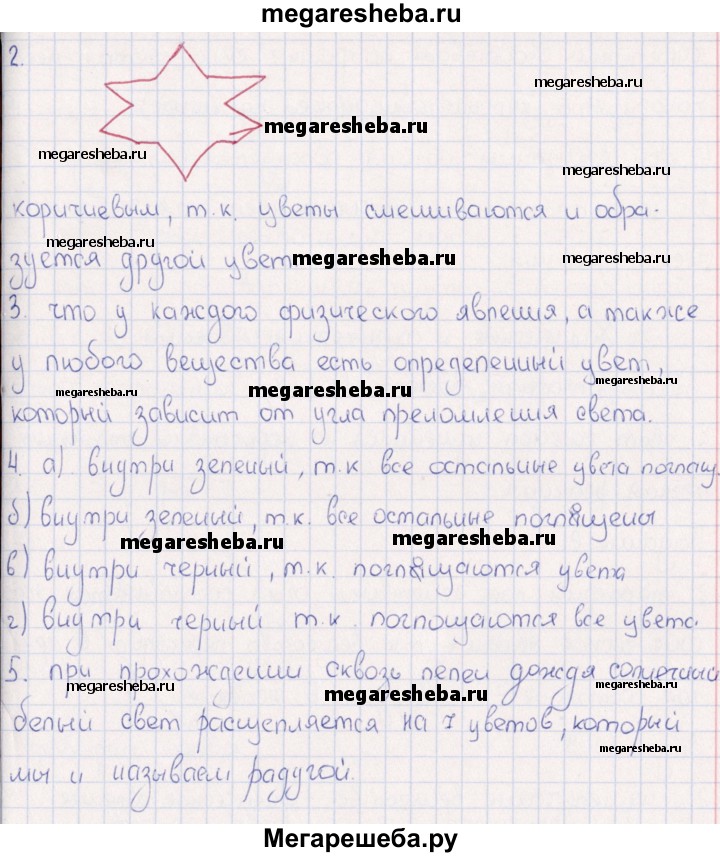 megaresheba.ru
2.
megaresheba.ru
megaresheba.ru
megaresheba.ru
megaresheba.ru
megaresheba.ru
коричневым, т.к. цветы смешиваются и обра-
megaresheba.ru
зуется другой цвет
megaresheba.ru
megaresheba.ru
3. что у каждого физического явления, а также
у любого вещества есть определенный цвет,
megaresheba.ru
megaresheba.ru
megaresheba.ru
который зависит от угла преломления света.
4. а). внутри зеленый, т.к все остальные цвета поглащ.
б) внутри зеленый, т.к. все остальные поглащены
megaresheba.ru
megaresheba.ru
в) внутри черный, т.к. поглащаются цвета
г) внутри черный т.к. поглощаются все цвета.
5. при прохождении сквозь пелен дождя солнечный
megaresheba.ru
megaresheba.ru
megaresheba.ru
белый свет расщепляется на 7 цветов, который
megaresheba.ru
мы и называем радугой.
Мегарешеба.ру